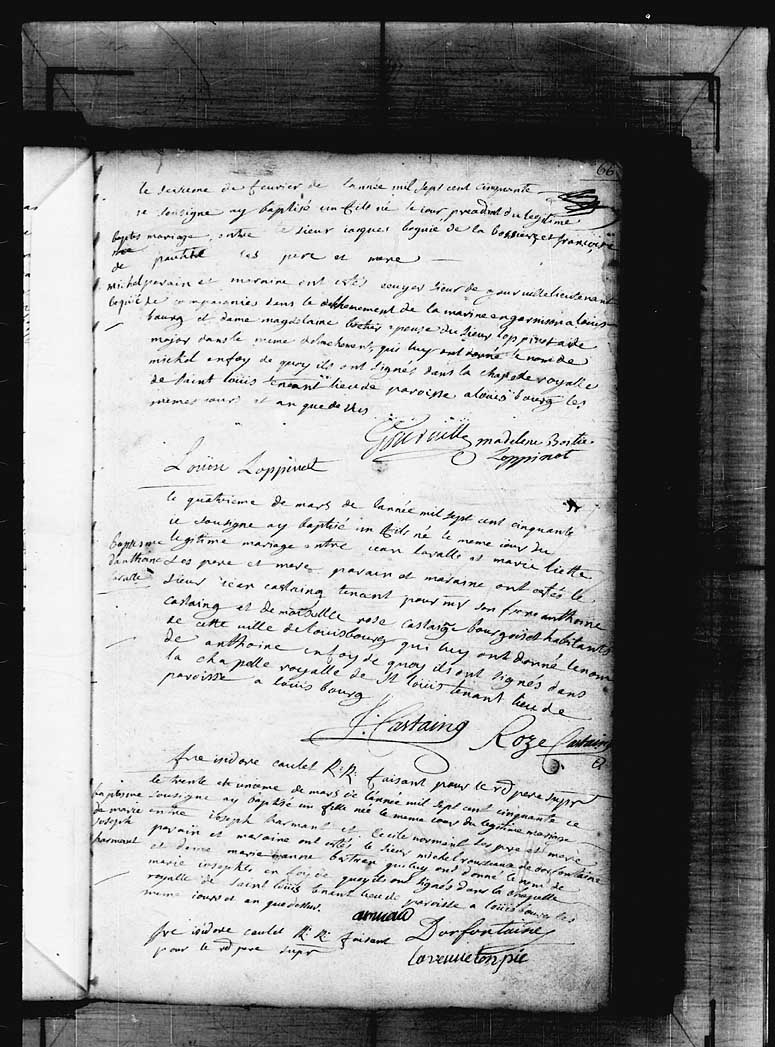 66
le sexieme de fevrier de lannée mil sept cent cinquante
ie sousigne ay baptisé un fils né le iour precedent du legitime
baptes mariage entre le sieur iacques beguie de la et françoise
de les pere et mere
michel parain et maraine ont estés ecuyer sieur de gourville lieutenant
beguié de compagnies dans le detachement de la marine en garnison a louis
bourg et dame magdelaine epouze du sieur loppinot aide
major dans le meme detachement, qui luy ont donné le nom de
michel en foy de quoy ils ont signés dans la chapelle royalle
de saint louis tenant lieu de paroisse a louis bourg les
memes iour et an que dessus
Gourville madelene Bortie
Loppinot
Louise Loppinot
le quatrieme de mars de lannée mil sept cent cinquante
ie sousigne ay baptisé un fils né le meme iour du
legitime mariage entre iean lavalle et marie liette
baptesme
danthoine les pere et mere, parain et maraine ont estés le
lavalle sieur iean castaing tenant pour mr son frere anthoine
castaing et demoiselle rose castaing bourgois et habitants
de cette ville de louisbourg qui luy ont donné le nom
de anthoine en foy de quoy ils ont signés dans
la chapelle royalle de st louis tenant lieu de
paroisse a louis bourg
J. Castaing Roze Castaing
fre isidore caulet R: R: faisant pour le rd pere supr
le trente et unieme de mars de lannée mil sept cent cinquante ie
baptisme sousigne ay baptisé un fille née le meme iour du legitime mariage
de marie entre ioseph harmant et cecile normant les pere et mere
ioseph parain et maraine ont estés le sieur michel rousseau de dorfontaine
harmant et dame marie anne qui luy ont donné le nom de
marie iosephle en foy de quoy ils ont signés dans la chapelle
royalle de saint louis tenant lieu de paroisse a louis bourg les
meme iours et an que dessus.
fre isidore caulet R: R: faisant Dorfontaine
pour le rd pere supr